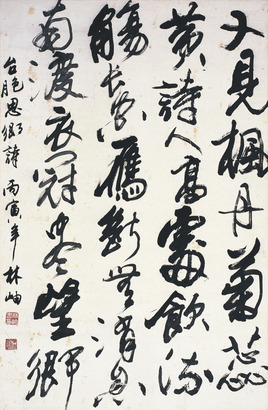 又見楓丹菊蕊
黃詩人高處飲流
觴長空雁斷無消息
南渡衣冠盡望鄉
台胞思鄉詩 丙寅年 林岫